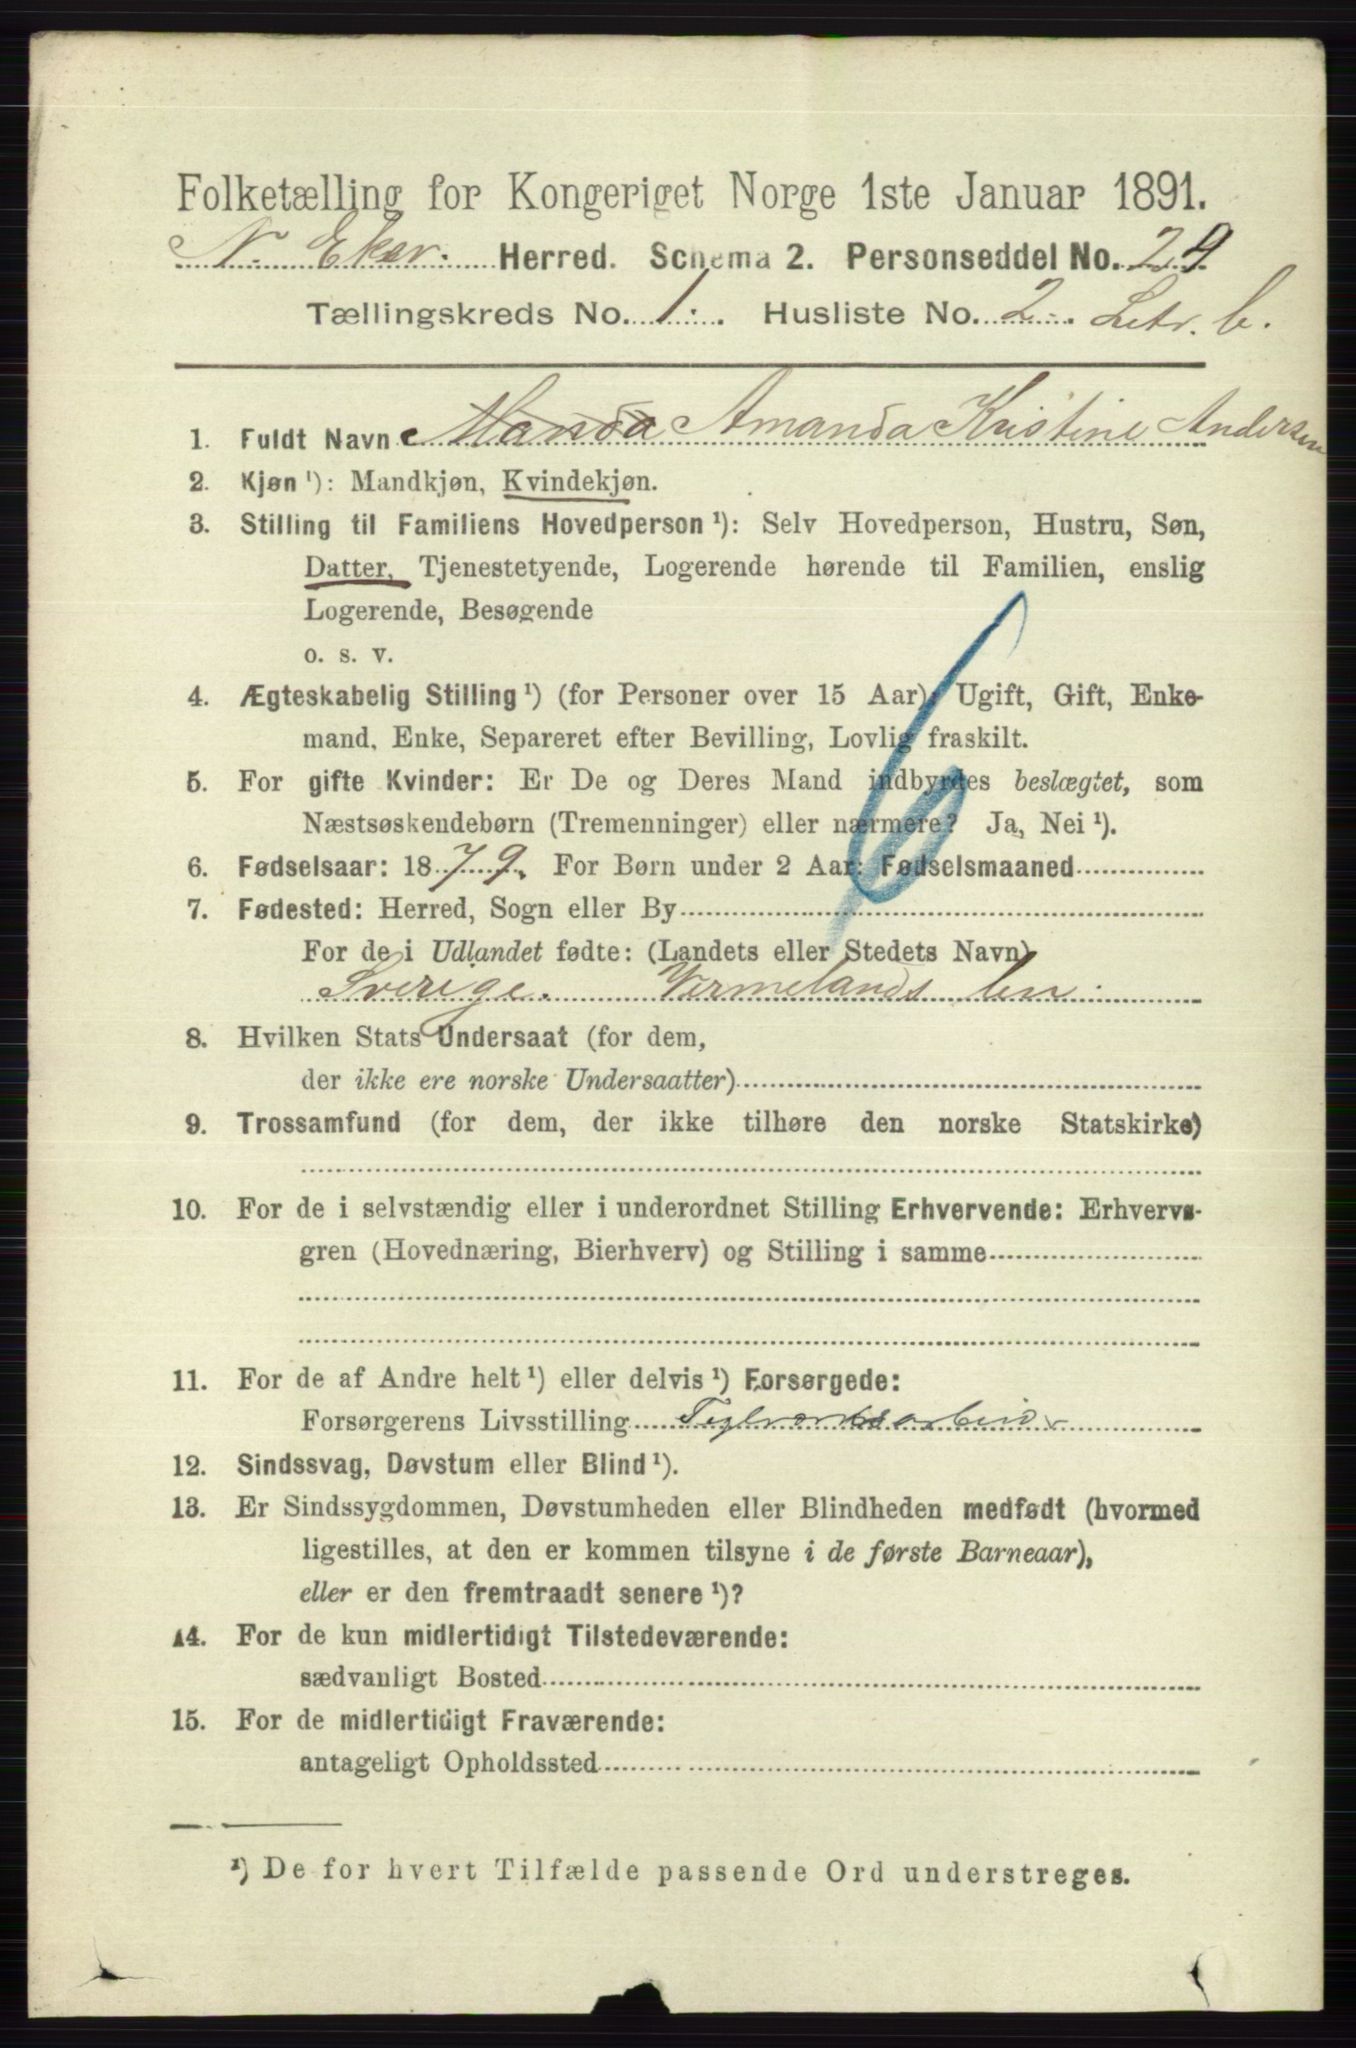 Folketælling for Kongeriget Norge 1ste Januar 1891.
N. Eker. Herred. Schema 2. Personseddel No. 29.
Tællingskreds No. 1. Husliste No. 2. Letr. b.
1. Fuldt Navn Manda Amanda Kristine Andersen
2. Kjøn ¹): Mandkjøn, Kvindekjøn.
3. Stilling til Familiens Hovedperson ¹): Selv Hovedperson, Hustru, Søn,
Datter, Tjenestetyende, Logerende hørende til Familien, enslig
Logerende, Besøgende
o. s. v.
4. Ægteskabelig Stilling ¹) (for Personer over 15 Aar): Ugift, Gift, Enke-
mand, Enke, Separeret efter Bevilling, Lovlig fraskilt.
5. For gifte Kvinder: Er De og Deres Mand indbyrdes beslægtet, som
Næstsøskendebørn (Tremenninger) eller nærmere? Ja, Nei ¹).
6. Fødselsaar: 1879. For Børn under 2 Aar: Fødselsmaaned
7. Fødested: Herred, Sogn eller By
For de i Udlandet fødte: (Landets eller Stedets Navn)
Sverige. Vermelands len
8. Hvilken Stats Undersaat (for dem,
der ikke ere norske Undersaatter)
9. Trossamfund (for dem, der ikke tilhøre den norske Statskirke)
10. For de i selvstændig eller i underordnet Stilling Erhvervende: Erhvervs-
gren (Hovednæring, Bierhverv) og Stilling i samme
11. For de af Andre helt ¹) eller delvis ¹) Forsørgede:
Forsørgerens Livsstilling Teglverksarbeider
12. Sindssvag, Døvstum eller Blind ¹).
13. Er Sindssygdommen, Døvstumheden eller Blindheden medfødt (hvormed
ligestilles, at den er kommen tilsyne i de første Barneaar),
eller er den fremtraadt senere ¹)?
14. For de kun midlertidigt Tilstedeværende:
sædvanligt Bosted
15. For de midlertidigt Fraværende:
antageligt Opholdssted
¹) De for hvert Tilfælde passende Ord understreges.